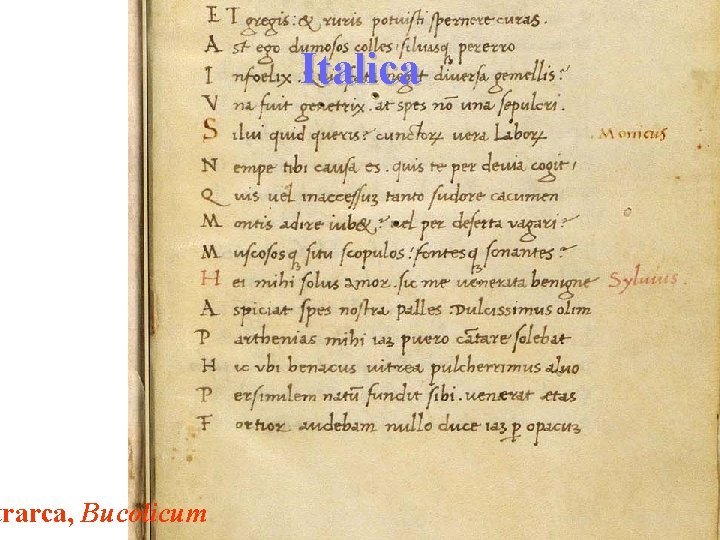 ET gregis: & ruris potuisti spernere curas.
Ast ego dumosos colles siluasq pererro
Italica
Infoelix. negat diuersa gemellis?
Vna fuit genetrix. at spes nō una sepulcri.
Silui quid queris? cunctoꝝ uera laboꝝ
Monicus
Nempe tibi causa es. quis te per deuia cogit,
Quis uel inaccessuꝫ tanto sudore cacumen
Montis adire iub&? uel per deserta uagari?
Muscososq situ scopulos: fontesq sonantes?
Hei mihi solus amor. sic me uenerata benigne
Syluius.
Aspiciat spes nostra palles. Dulcissimus olim
Parthenias mihi iaꝫ puero cātare solebat
Hic ubi benacus uitrea pulcherrimus aluo
Persimilem natū fundit sibi. uenerat ætas
Fortior audebam nullo duce iaꝫ ꝑ opacuꝫ
trarca, Bucolicum